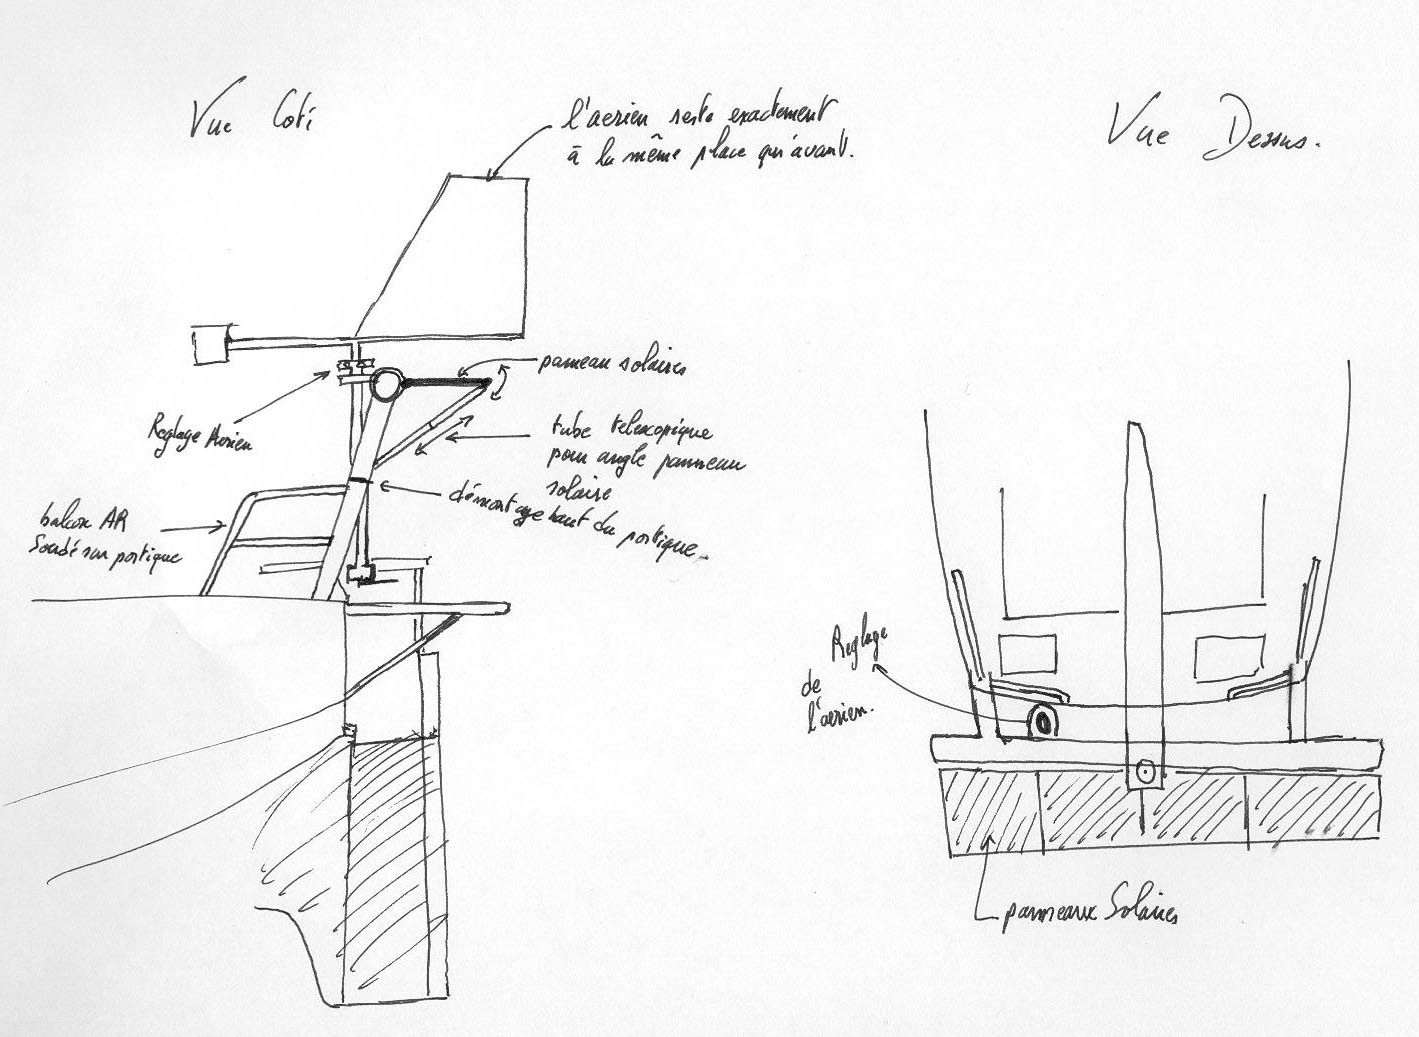 Vue Coté
l'aerien reste exactement
à la même place qu'avant.
Vue Dessus.
panneau solaires
Reglage Aerien
tube telescopique
pour angle panneau
solaire
démontage haut du portique
balcon AR
Soudé sur portique
Reglage
de
l'aerien.
panneaux Solaires